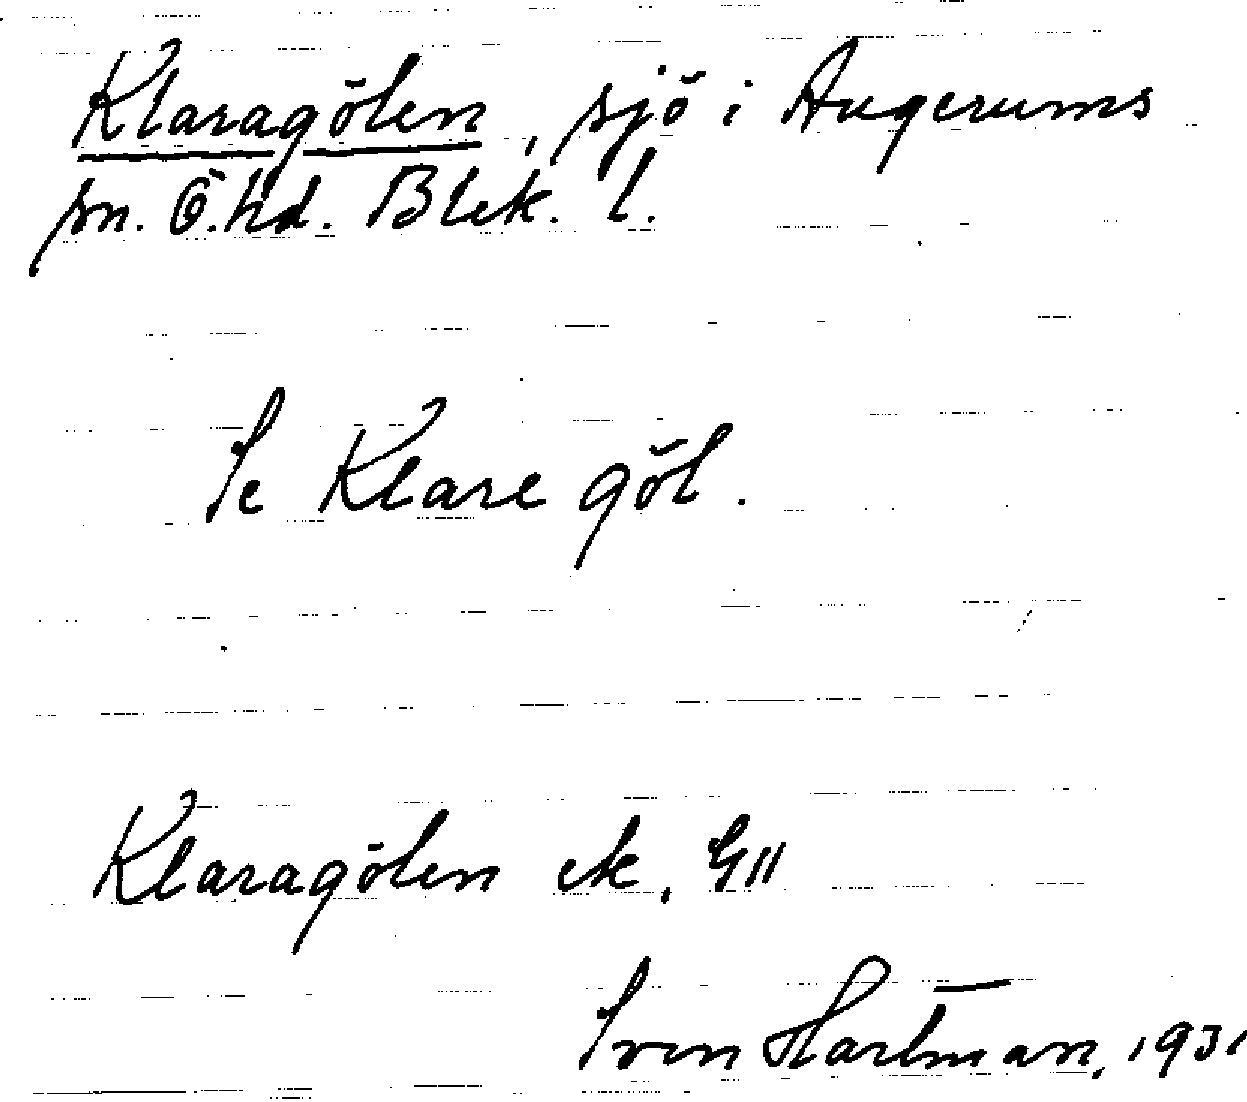 Klaragölen, sjö i Augerums
sn. Ö. hd. Blek. l.
Se Klare göl.
Klaragölen ek. G11
Sven Hartman, 1931